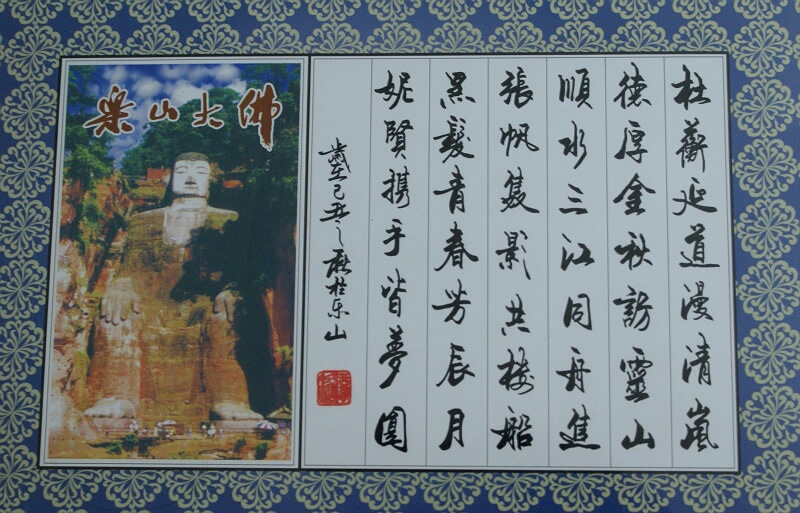 樂山大佛
杜蘅延道漫清嵐
德厚金秋訪靈山
順水三江同舟進
張帆隻影共樓船
黑髮青春芳辰月
妮賢携手皆夢圓
歲在己丑之秋於乐山